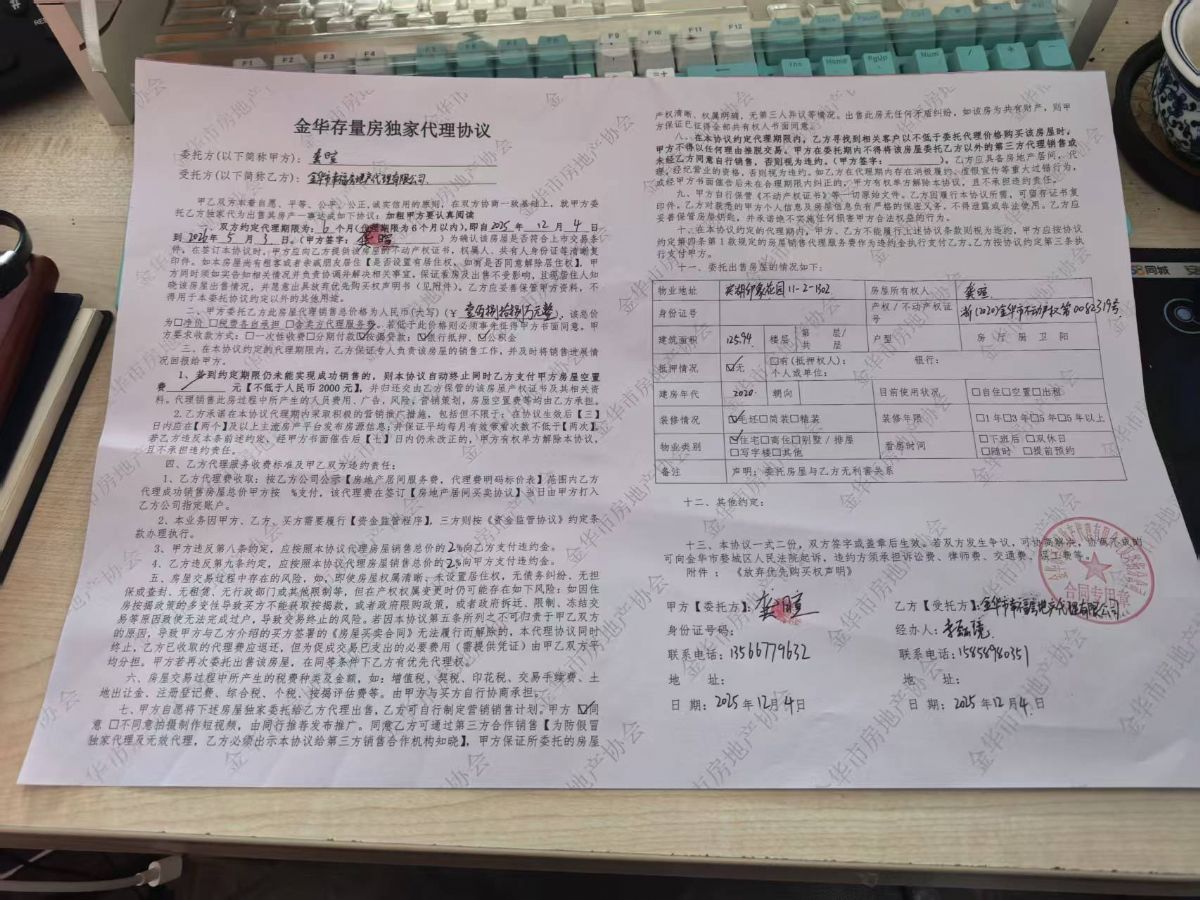 金华存量房独家代理协议
委托方(以下简称甲方)：龚暄
受托方(以下简称乙方)：
甲乙双方本着自愿、平等、公平、公正、诚实信用的原则，在双方协商一致基础上，就甲方委
托乙方独家代为出售其房产一事达成如下协议：加粗甲方要认真阅读
一、双方约定代理期限为：6个月(代理期限为6个月以内)，即自2025年12月4日
到2026年5月3日。(甲方签字：龚暄)为确认该房屋是否符合上市交易条
件。在签订本协议时，甲方应向乙方提供该房屋的不动产权证书，权属人、共有人身份证等清晰复
印件。如本房屋尚有租客或者亲戚朋友居住【是否设置有居住权，如有是否同意解除居住权】，甲
方同时须如实告知相关情况并负责协调并解决相关事宜，保证看房及出售不受影响，且现居住人知
晓该房屋出售情况，并愿意出具放弃优先购买权声明书(见附件)。乙方应妥善保管甲方资料，不
得用于本委托协议约定以外的其他用途。
二、甲方委托乙方此房屋代理销售总价格为人民币(大写)(￥壹佰捌拾捌万元整，该总价
为□净价 □税费各自承担 □含卖方代理服务费。若低于此价格则必须事先征得甲方书面同意。甲
方要求收款方式：□一次性收费□分期付款☑按揭贷款；☑银行抵押、☑公积金
三、在本协议约定的代理期限内，乙方保证专人负责该房屋的销售工作，并及时将销售进展情
况回报给甲方。
1、若到约定期限仍未能实现成功销售的，则本协议自动终止同时乙方支付甲方房屋空置
费 元【不低于人民币2000元】，并归还交由乙方保管的该房屋产权证书及其相关资
料。代理销售此房过程中所产生的人员费用、广告、风险、营销策划、房屋空置费等均由乙方承担。
2.乙方承诺在本协议代理期内采取积极的营销推广措施，包括但不限于：在协议生效后【三】
日内应在【两个】及以上主流房产平台发布房源信息；并保证平均每月有效带看次数不低于【两次】。
若乙方违反本条前述约定、经甲方书面催告后【七】日内仍未改正的，甲方有权单方解除本协议，
且不承担违约责任。
四、乙方代理服务收费标准及甲乙双方违约责任：
1、乙方代理费收取：按乙方公示【房地产居间服务费，代理费明码标价表】范围内乙方
代理成功销售房屋总价甲方按 %支付，该代理费在签订【房地产居间买卖协议】当日由甲方打入
乙方公司指定账户。
2、本业务因甲方、乙方、买方需要履行【资金监管程序】，三方则按《资金监管协议》约定条
款办理执行。
3、甲方违反第八条约定，应按照本协议代理房屋销售总价的2%向乙方支付违约金。
4、乙方违反第九条约定，应按照本协议代理房屋销售总价的2%向甲方支付违约金。
五、房屋交易过程中存在的风险，如、即使房屋权属清晰、未设置居住权，无债务纠纷、无担
保或查封、无租赁、无行政部门或其他限制等，但在产权权属变更时仍可能存在如下风险：如因住
房按揭政策的多变性导致买方不能获取按揭款，或者政府限购政策，或者政府拆迁、限制、冻结交
易等原因致使无法完成过户，导致交易终止的风险。若因本协议第五条所列之不可归责于甲乙双方
的原因，导致甲方与乙方介绍的买方签署的《房屋买卖合同》无法履行而解除的，本代理协议同时
终止，乙方已收取的代理费应退还，但为促成交易已支出的必要费用(需提供凭证)由甲乙双方平
均分担。甲方若再次委托出售该房屋，在同等条件下乙方有优先代理权。
六、房屋交易过程中所产生的税费种类及金额，如：增值税、契税、印花税、交易手续费、土
地出让金、注册登记费、综合税、个税、按揭评估费等。由甲方与买方自行协商承担。
七、甲方自愿将下述房屋独家委托给乙方代理出售，乙方可自行制定营销销售计划。甲方☑同
意 □不同意拍摄制作短视频，由同行推荐发布推广。同意乙方可通过第三方合作销售【为防假冒
独家代理及无效代理，乙方必须出示本协议给第三方销售合作机构知晓】，甲方保证所委托的房屋
产权清晰、权属明确，无第三人异议等情况。出售此房无任何矛盾纠纷，如该房为共有财产，则甲
方保证已征得全部共有权人书面同意。
八、在本协议约定代理期限内，乙方寻找到相关客户以不低于委托代理价格购买该房屋时，
甲方不得以任何理由推脱交易。甲方在委托期内不得将该房屋委托乙方以外的第三方代理销售或
未经乙方同意自行销售，否则视为违约。(甲方签字：)。乙方应具备房地产居间，代
理，经纪营业的资格，否则视为违约。如乙方在代理期内存在消极履约、虚假宣传等重大过错行为，
或经甲方书面催告后未在合理期限内纠正的，甲方有权单方解除本协议，且不承担违约责任。
九、甲方自行保管《不动产权证书》等一切原始文件。乙方因履行本协议所需，可留存证书复
印件。乙方对获悉的甲方个人信息及房屋信息负有严格的保密义务，不得泄露或非法使用。乙方应
妥善保管房屋钥匙，并承诺绝不实施任何损害甲方合法权益的行为。
十、在本协议约定的代理期内，甲方、乙方不能履行上述协议条款则视为违约，甲方应按协议
约定第四条第1款规定的房屋销售代理服务费作为违约金执行支付乙方，乙方按协议约定第三条执
行支付甲方。
十一、委托出售房屋的情况如下：
物业地址 11-2-1302 房屋所有权人 龚暄
身份证号 产权/不动产权证号 浙(2020)金华市不动产权第0082319号
建筑面积 125.94 楼层 第 层/共 层 户型 房 厅 厨 卫 阳
抵押情况 ☑无 □有(抵押权人)： 银行： 个人或单位：
建房年代 2020 朝向 目前使用状况 □自住□空置□出租
装修情况 ☑毛坯□简装□精装 装修年限 □1年□3年□5年□5年以上
物业类别 ☑住宅□商住□别墅/排屋 □写字楼□其他 看房时间 □下班后 □双休日 □随时 □提前预约
备注 声明：委托房屋与乙方无利害关系
十二、其他约定：
十三、本协议一式二份，双方签字或盖章后生效。若双方发生争议，可协商解决，协商不成的
可向金华市婺城区人民法院起诉，违约方须承担诉讼费、律师费、交通费、误工费等。
附件：《放弃优先购买权声明》
甲方【委托方】：龚暄
身份证号码：
联系电话：13566779632
地 址：
日 期：2025年12月4日
乙方【受托方】：
经办人：
联系电话：15858980351
地 址：
日 期：2025年12月4日
合同专用章
金华市房地产协会
F1 F2 F3 F4 F9 F10 F11 F12
Ins Home PgUp Num
58同城